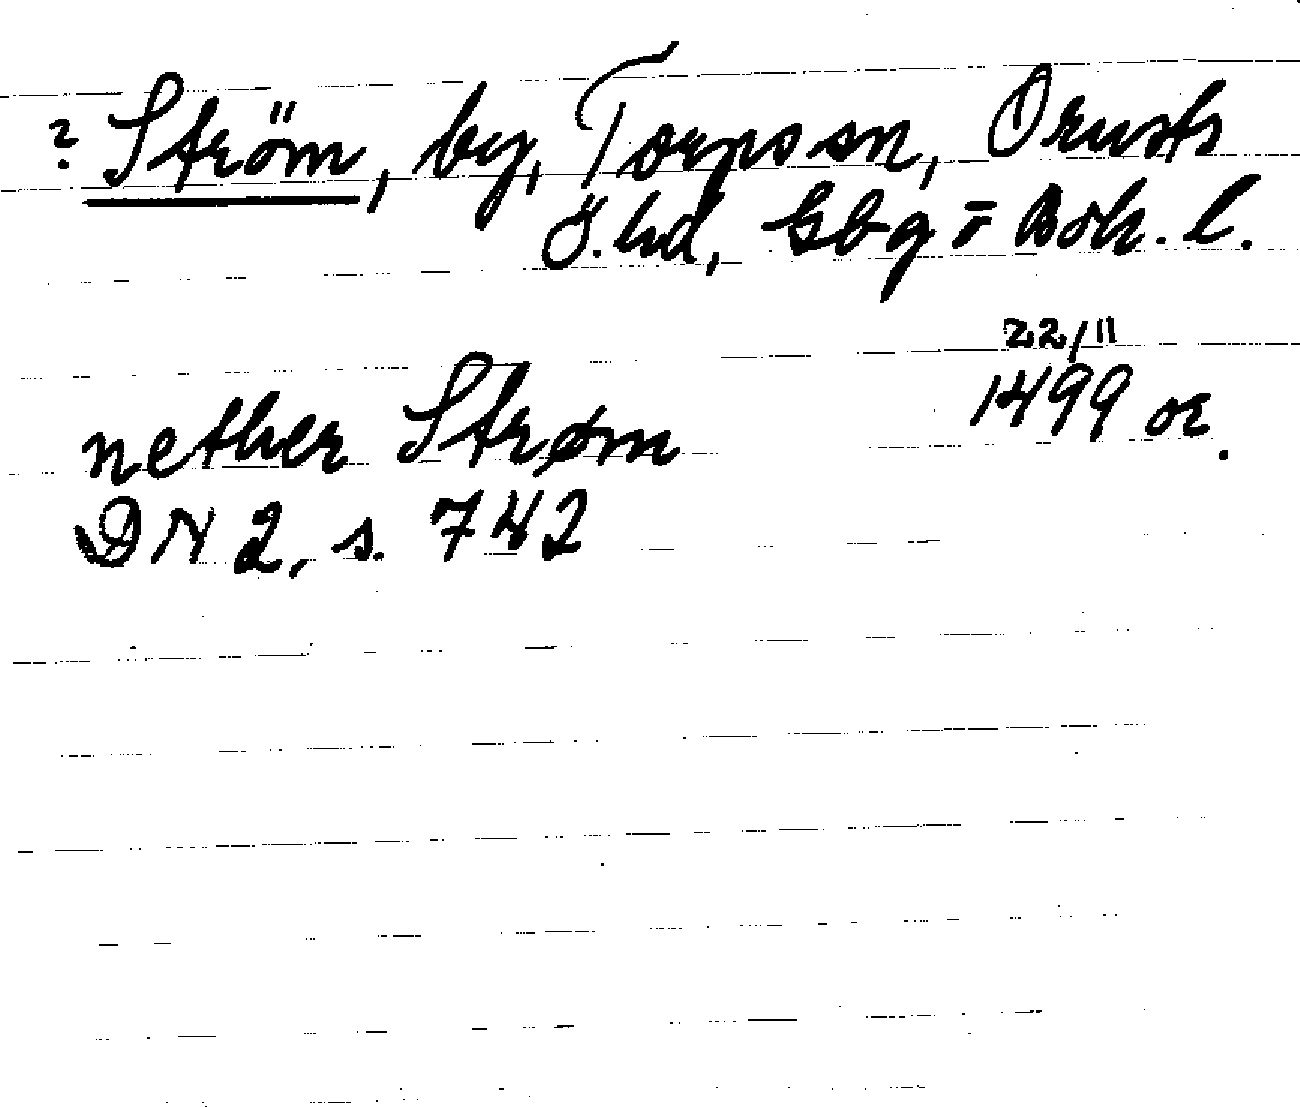 ? Ström, by, Torps sn, Orusts
Ö. hd, Gbg o Boh. l.
22/11
nether Strøm 1499 or.
DN 2, s. 742